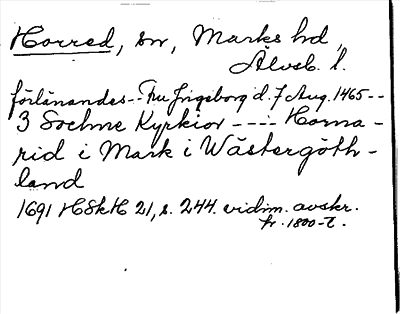 Horred, sn, Marks hd,
Älvsb. l.
förlänandes--Fru Jngeborg d. 7 Aug. 1465--
3 Sochne Kyrkior ---- Horna-
rid i Mark i Wästergöth-
land
1691 HSkH 21, s. 244. vidim. avskr.
fr. 1800-t.